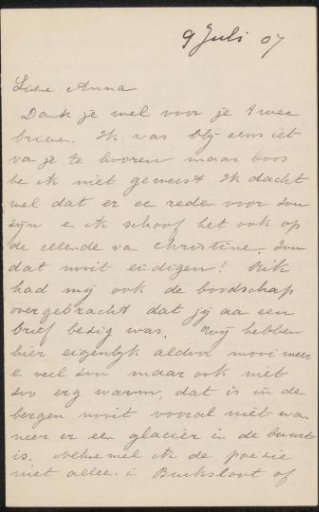 9 Juli 07
Lieve Anna
Dank je wel voor je twee
brieven. Ik was blij eens iet
va je te hooren maar boos
be ik niet geweest. Ik dacht
wel dat er ee reden voor zou
zijn e ik schoof het ook op
de ellende va Christine. Zou
dat nooit eidigen! Rik
had mij ook de boodschap
overgebracht dat jij aa een
brief bezig was. Wij hebben
hier eigenlijk aldoor mooi weer
e veel zon maar ook niet
zoo erg warm, dat is in de
bergen nooit vooral niet wa
neer er een glacier in de buurt
is. ik de poësie
niet allee i Buiksloot of